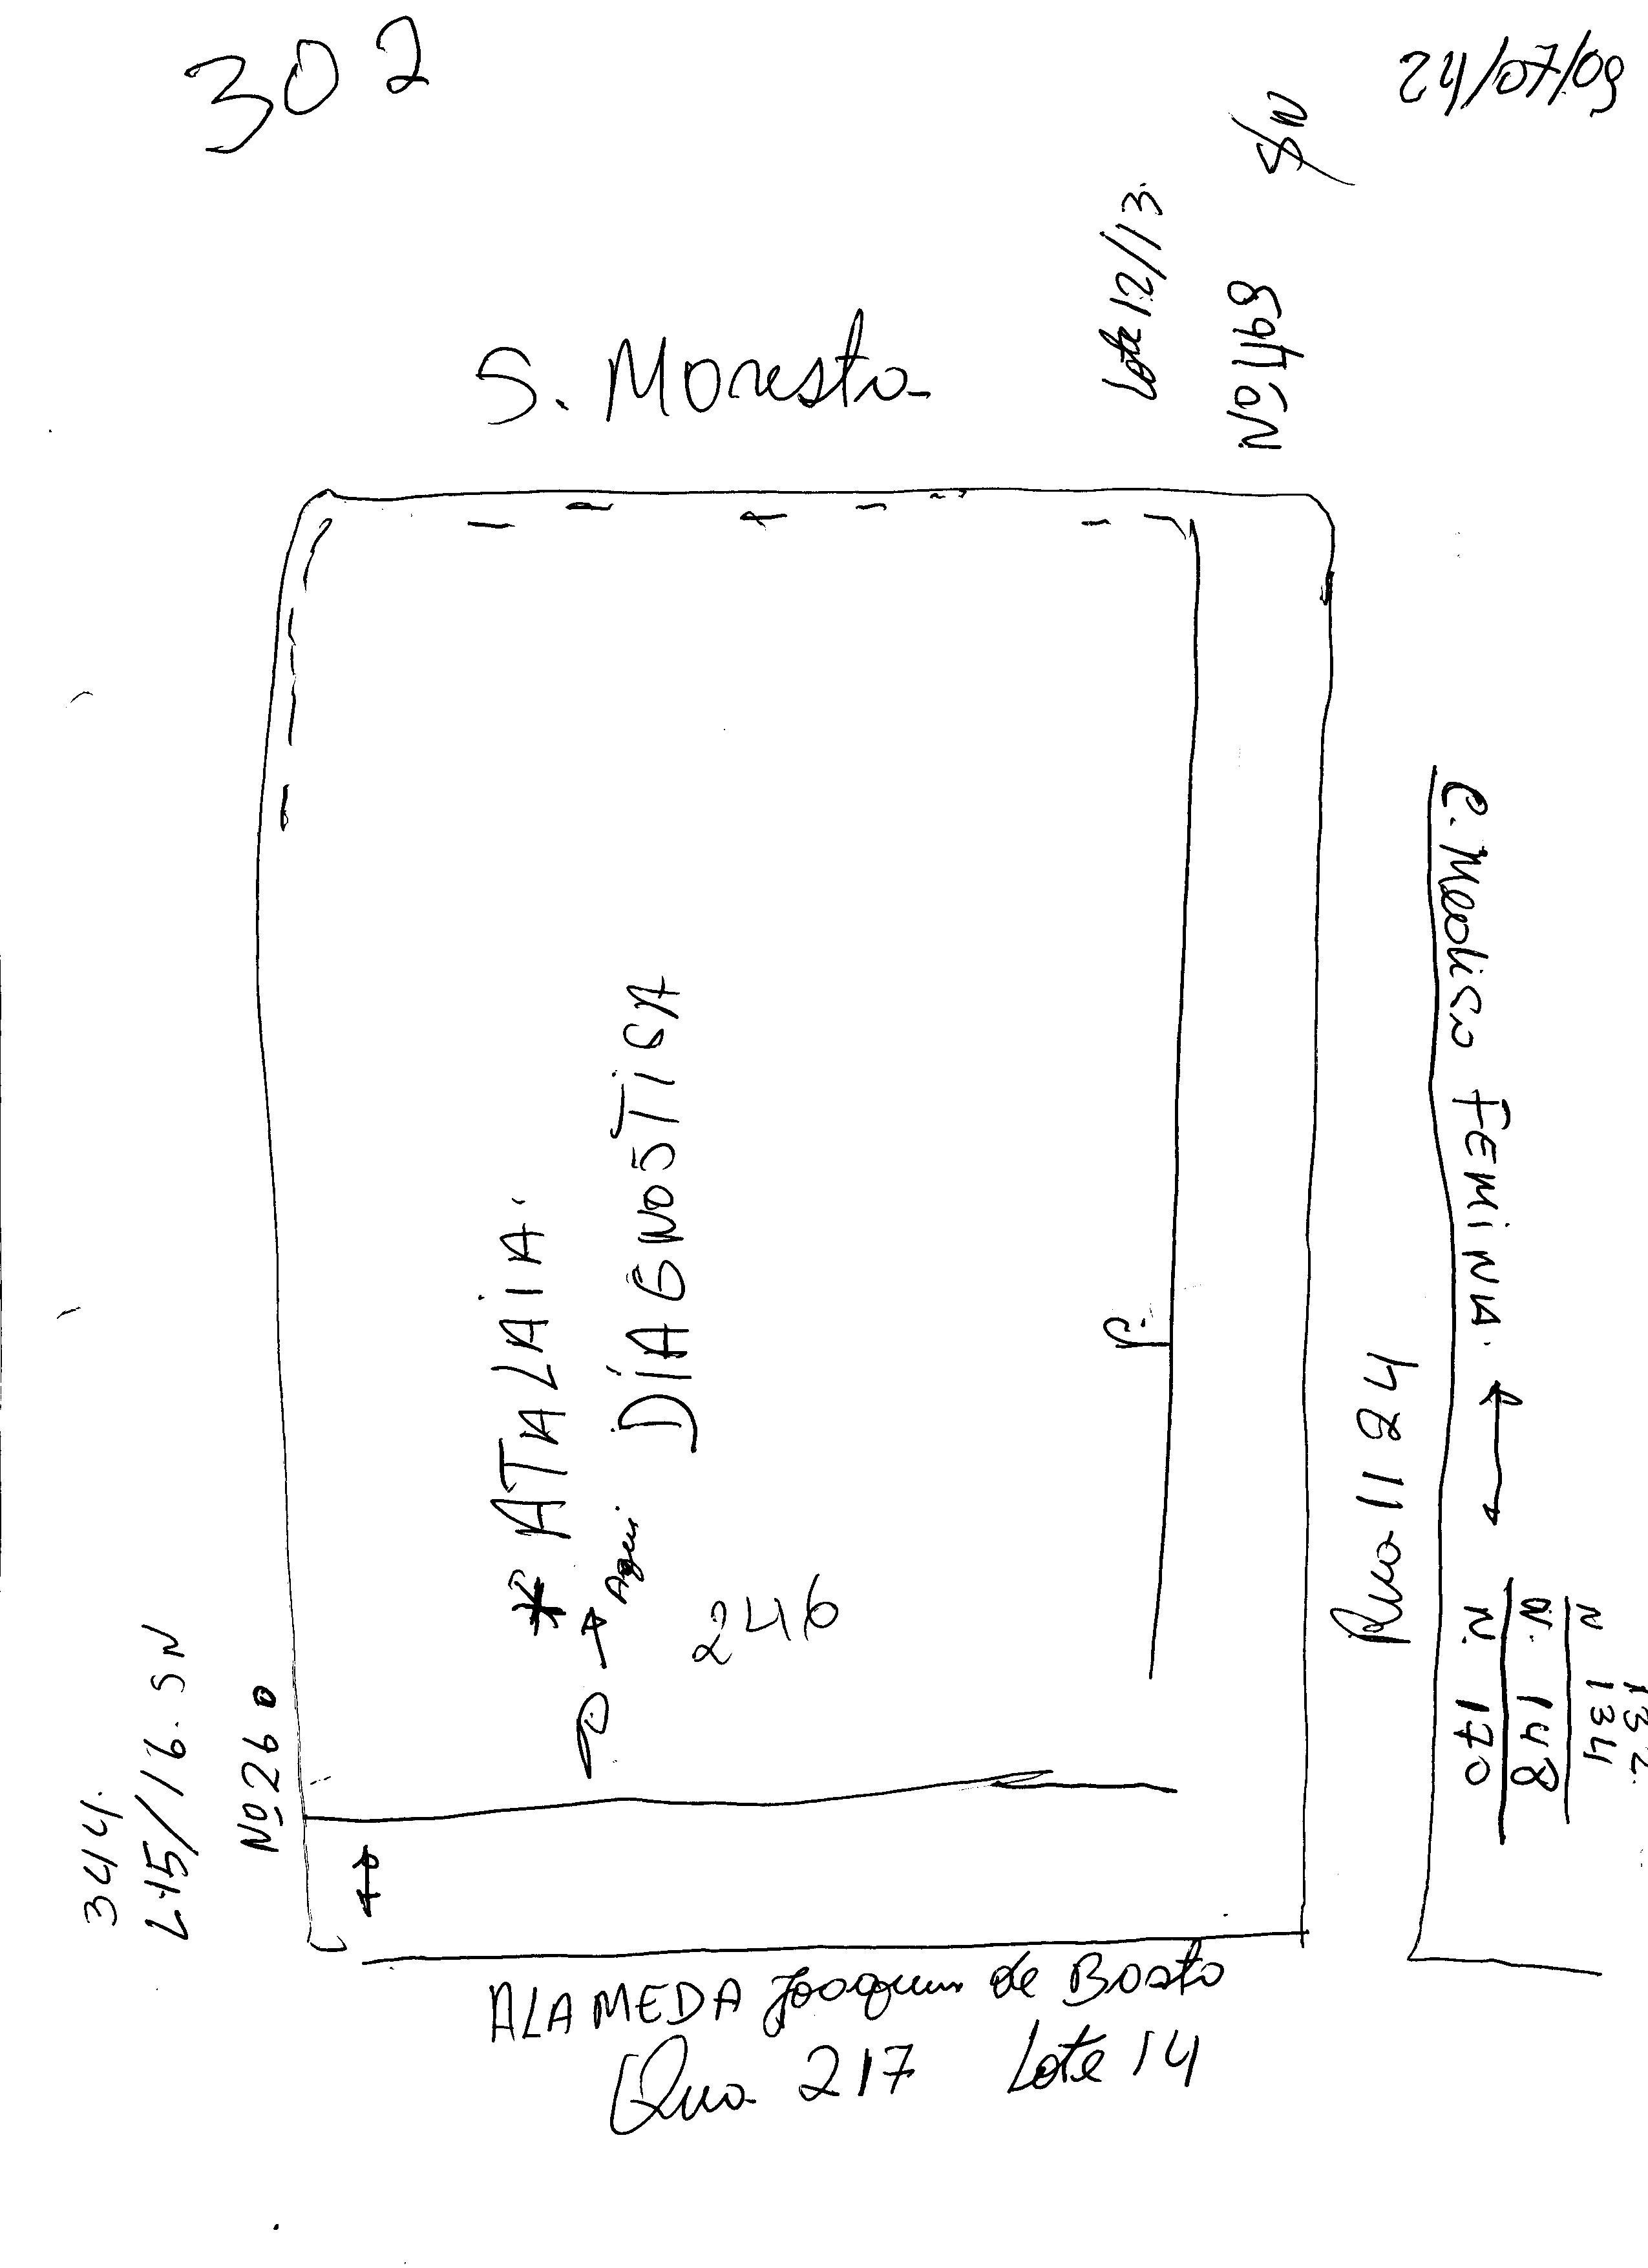 302
24/07/09
S/N
Lote 12/13
Nº 1469
S. Moresta
C. Medico FEMINA.
* ATALAIA.
DIAGNOSTICA
P.
Aqui
246
P
Rua 1124
N. 170
N. 148
N 134
132
344.
L-15/16. SN
Nº 260
ALAMEDA Joaquim de Basto
Qua 217 Lote 14